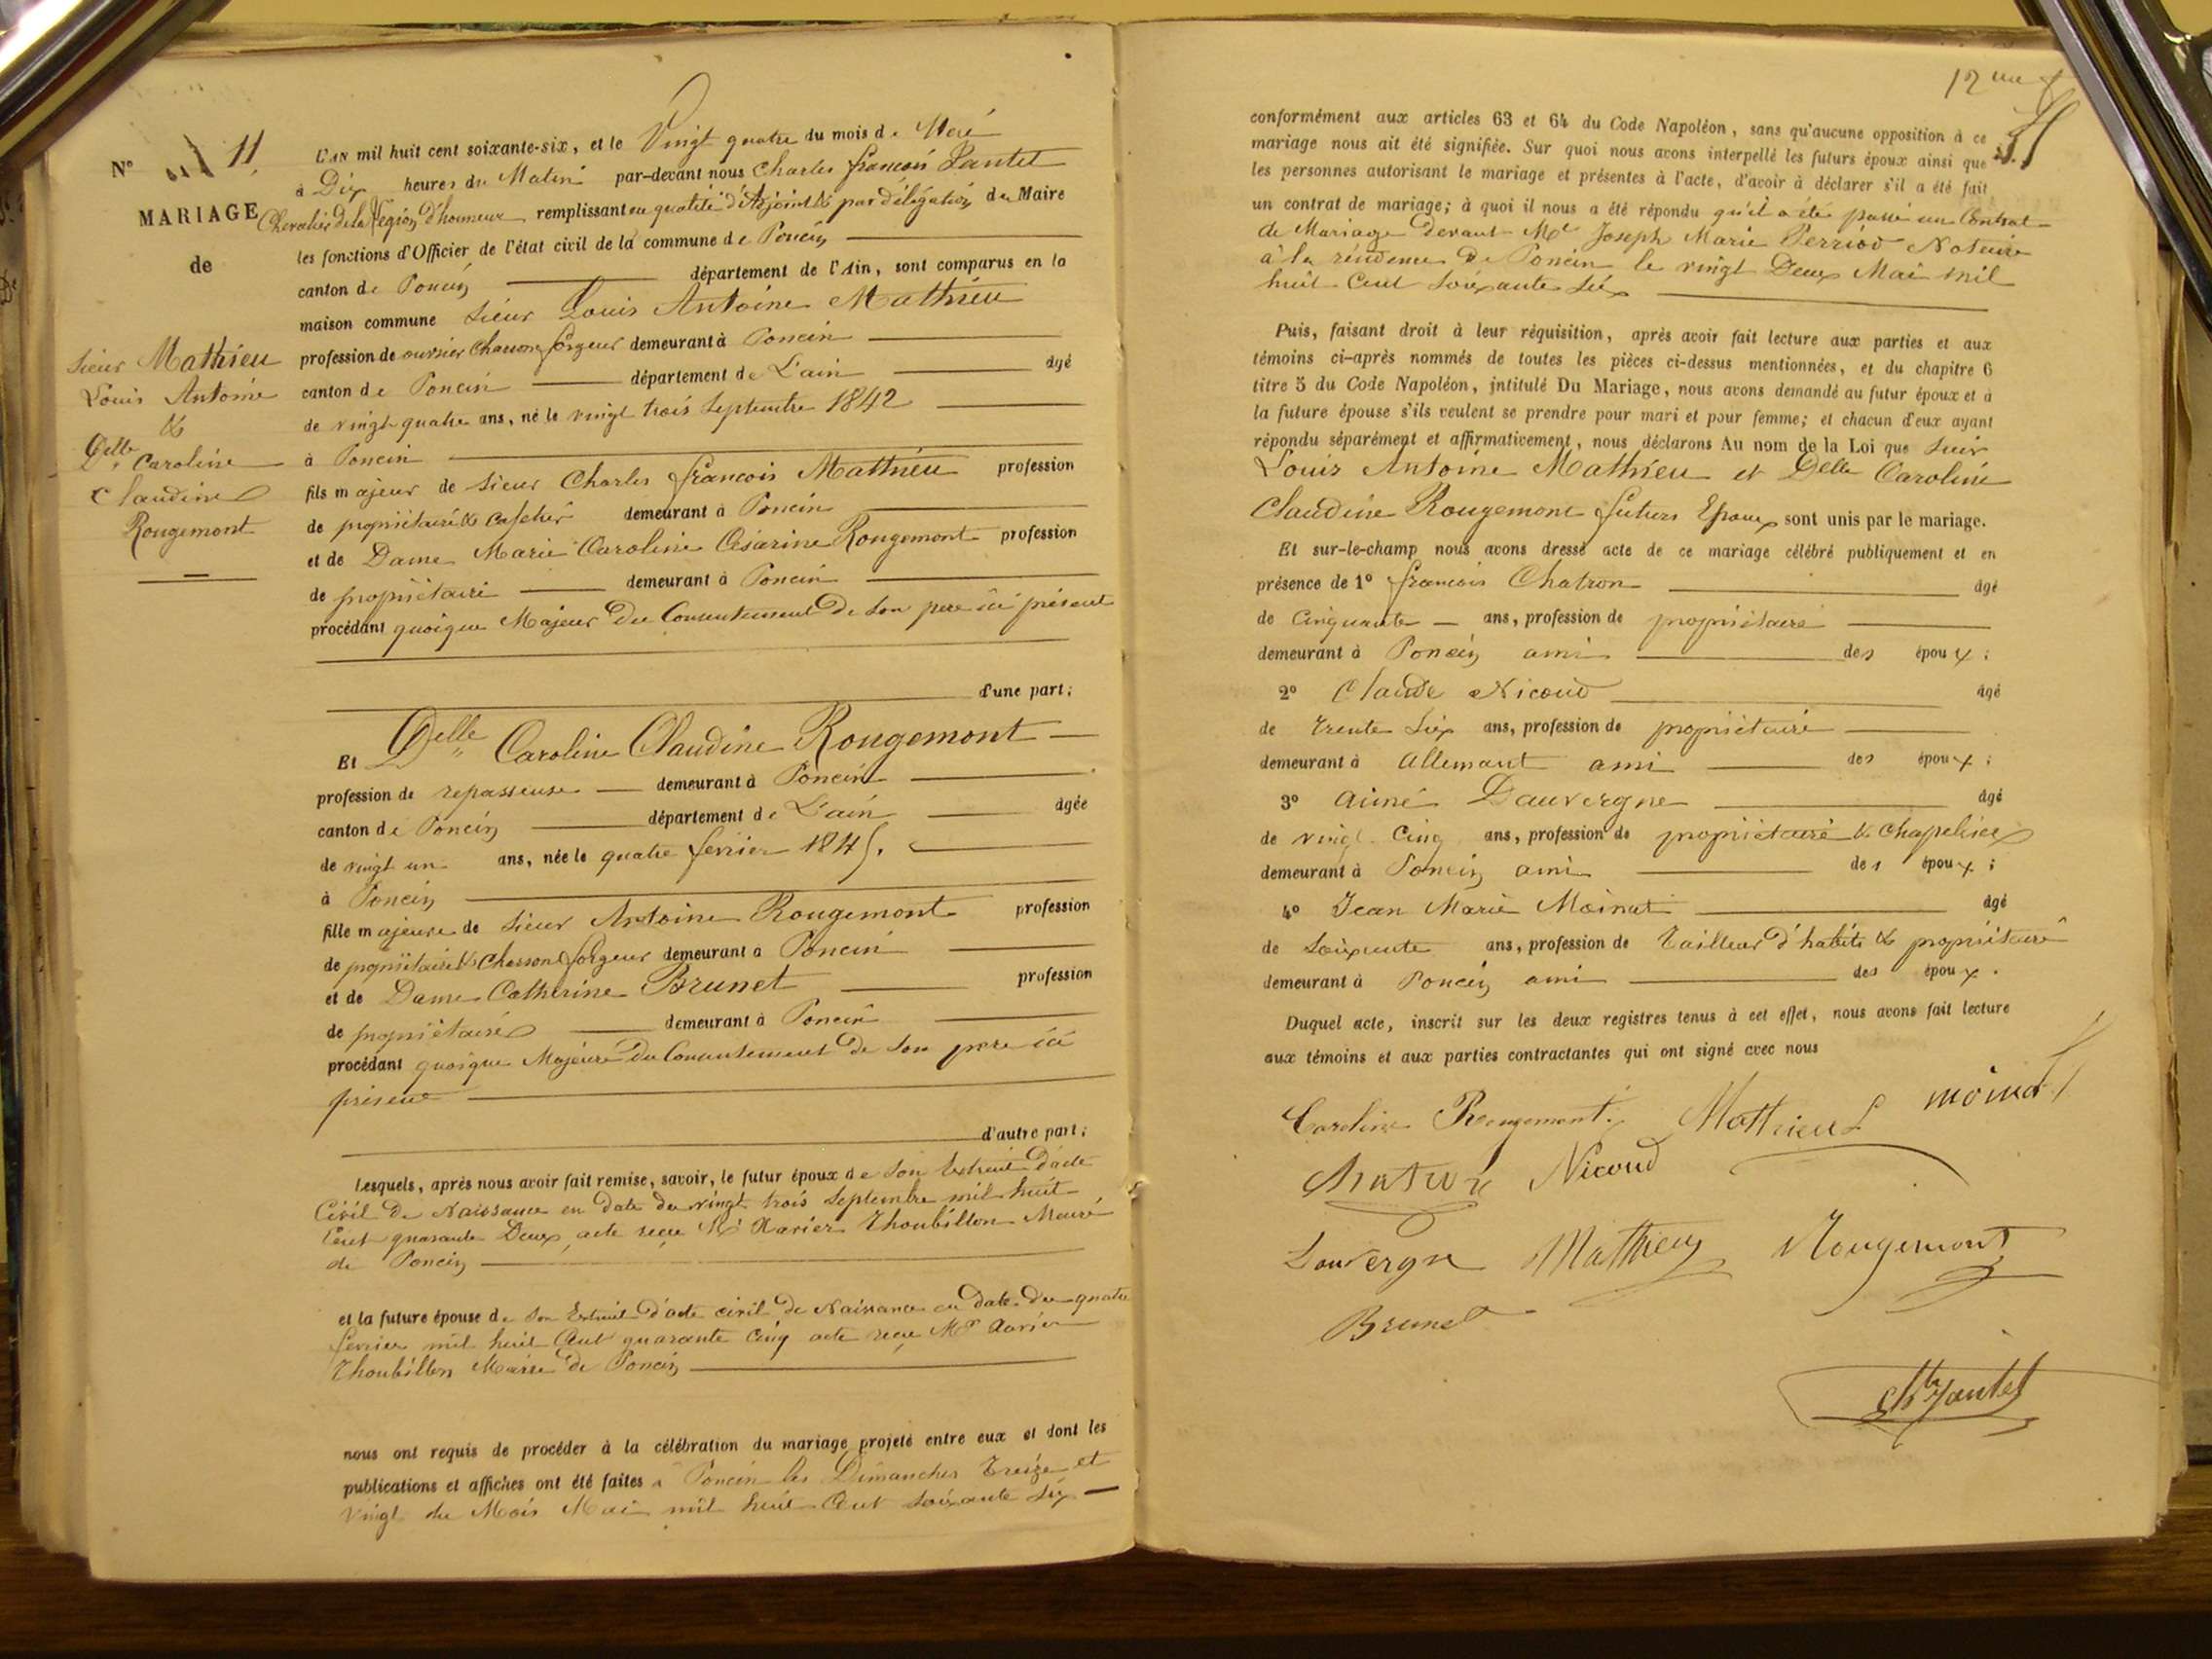 N° 11
MARIAGE
de
Sieur Mathieu
Louis Antoine
&
Delle Caroline
Claudine
Rougemont
L'AN mil huit cent soixante-six, et le Vingt quatre du mois de Mai
à Dix heures du Matin par-devant nous Charles françois Jantet
Chevalier de la Légion d'honneur remplissant en qualité d'Adjoint & par délégation du Maire
les fonctions d'Officier de l'état civil de la commune de Poncin
canton de Poncin département de l'Ain, sont comparus en la
maison commune Sieur Louis Antoine Mathieu
profession de ouvrier Charron forgeur demeurant à Poncin
canton de Poncin département de L'ain âgé
de vingt quatre ans, né le vingt trois Septembre 1842
à Poncin
fils majeur de Sieur Charles françois Mathieu profession
de propriétaire & demeurant à Poncin
et de Dame Marie Caroline Césarine Rougemont profession
de propriétaire demeurant à Poncin
procédant quoique Majeur du Consentement de son père ici présent
d'une part;
Et Delle Caroline Claudine Rougemont
profession de repasseuse demeurant à Poncin
canton de Poncin département de L'ain âgée
de vingt un ans, née le quatre fevrier 1845.
à Poncin
fille majeure de Sieur Antoine Rougemont profession
de propriétaire & Charron forgeur demeurant à Poncin
et de Dame Catherine Brunet profession
de propriétaire demeurant à Poncin
procédant quoique Majeure du Consentement de son père ici
présent
d'autre part;
Lesquels, après nous avoir fait remise, savoir, le futur époux de son Extrait d'acte
Civil de Naissance en date du vingt trois Septembre mil huit
Cent quarante Deux, acte reçu Mr Xavier Thoubillon Maire
de Poncin
et la future épouse de son Extrait d'acte civil de Naissance en date du quatre
fevrier mil huit Cent quarante Cinq acte reçu Mr Xavier
Thoubillon Maire de Poncin
nous ont requis de procéder à la célébration du mariage projeté entre eux et dont les
publications et affiches ont été faites à Poncin les Dimanches Treize et
Vingt du Mois Mai mil huit Cent soixante Six
12 me
conformément aux articles 63 et 64 du Code Napoléon, sans qu'aucune opposition à ce
mariage nous ait été signifiée. Sur quoi nous avons interpellé les futurs époux ainsi que
les personnes autorisant le mariage et présentes à l'acte, d'avoir à déclarer s'il a été fait
un contrat de mariage; à quoi il nous a été répondu qu'il a été passé un Contrat
de Mariage devant Me Joseph Marie Perriod Notaire
à la résidence de Poncin le vingt Deux Mai mil
huit Cent Soixante Six
Puis, faisant droit à leur réquisition, après avoir fait lecture aux parties et aux
témoins ci-après nommés de toutes les pièces ci-dessus mentionnées, et du chapitre 6
titre 5 du Code Napoléon, intitulé Du Mariage, nous avons demandé au futur époux et à
la future épouse s'ils veulent se prendre pour mari et pour femme; et chacun d'eux ayant
répondu séparément et affirmativement, nous déclarons Au nom de la Loi que Sieur
Louis Antoine Mathieu et Delle Caroline
Claudine Rougemont futurs Epoux sont unis par le mariage.
Et sur-le-champ nous avons dressé acte de ce mariage célébré publiquement et en
présence de 1° françois Chatron âgé
de Cinquante ans, profession de propriétaire
demeurant à Poncin ami des époux;
2° Claude Nicoud âgé
de trente Six ans, profession de propriétaire
demeurant à Allemant ami des époux;
3° Aimé Dauvergne âgé
de vingt Cinq ans, profession de propriétaire & Chapelier
demeurant à Poncin ami des époux;
4° Jean Marie Moinat âgé
de Soixante ans, profession de Tailleur d'habits & propriétaire
demeurant à Poncin ami des époux.
Duquel acte, inscrit sur les deux registres tenus à cet effet, nous avons fait lecture
aux témoins et aux parties contractantes qui ont signé avec nous
Caroline Rougemont. Mathieu L moinat
Chatron Nicoud
Dauvergne Mathieu Rougemont
Brunet
Ch Jantet